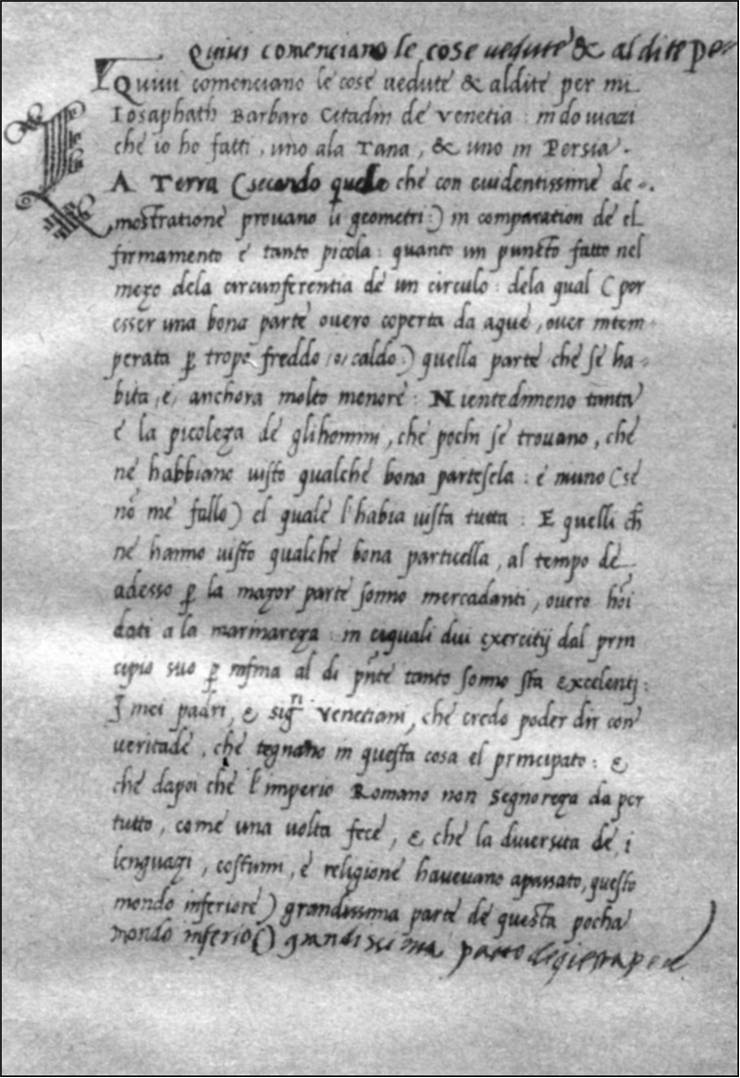 Quiui comenciano le cose uedute & aldite pe
Quiui comenciano le cose uedute & aldite per mi
Iosaphath Barbaro Citadin de Venetia : in do uiazi
che io ho fatti, uno ala Tana, & uno in Persia.
LA Terra (secondo quello che con euidentissime de-
mostratione prouano li geometri:) in comparation de el
firmamento e tanto picola : quanto un puncto fatto nel
mezo dela circunferentia de un circulo : dela qual (per
esser una bona parte ouero coperta da aque, ouer intem-
perata p̱ tropo freddo /o/ caldo:) quella parte che se ha-
bita, e, anchora molto menore : Nientedimeno tanta
e la picoleza de glihomini, che pochi se trouano, che
ne habbiano uisto qualche bona partesela : e niuno (se
nõ me fallo) el quale l'habia uista tutta : E quelli ch̃
ne hanno uisto qualche bona particella, al tempo de
adesso p̱ la mazor parte sonno mercadanti, ouero hoĩ
dati a la marinareza : in equali dui exercitij dal prin
cipio suo p̱ infina al di pñte tanto sonno sta excelentj :
I mei padri, e sigʳⁱ Venetiani, che credo poder dir con
ueritade, che tegnano in questa cosa el principato : e
che dapoi che l'imperio Romano non segnoreza da per
tutto, come una uolta fece, e che la diuersita de i
lenguazi, costumi, e religione haueuano apassato, questo
mondo inferiore) grandissima parte de questa pocha
mondo inferio() grandiscima parte de qiesta poc